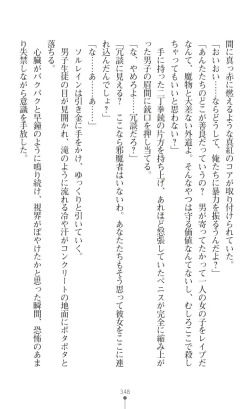 間に真っ赤に燃えるような真紅のコアが取り付けられていた。
「おいおい……ならどうして、俺たちに暴力を振るうんだよ？」
「あんたたちのどこが善良だっていうの？　男が寄ってたかって一人の女の子をレイプだ
なんて、魔物と大差ない外道よ。そんなやつは守る価値なんてないし、むしろここで殺し
ちゃってもいいと思わない？」
　手に持った二丁拳銃の片方を持ち上げ、あれほど怒張していたペニスが完全に縮み上が
った男子の眉間に銃口を押し当てる。
「な、やめろよ……冗談だろ？」
「冗談に見える？　ここなら邪魔者はいないわ。あなたたちもそう思って彼女をここに連
れ込んだんでしょ？」
「な……あ……あ……」
　ソルレインは引き金に手をかけ、ゆっくりと引いていく。
　男子生徒の目が見開かれ、滝のように流れる冷や汗がコンクリートの地面にポタポタと
落ちる。
　心臓がバクバクと早鐘のように鳴り続け、視界がぼやけたかと思った瞬間、恐怖のあま
り失禁しながら意識を手放した。
348